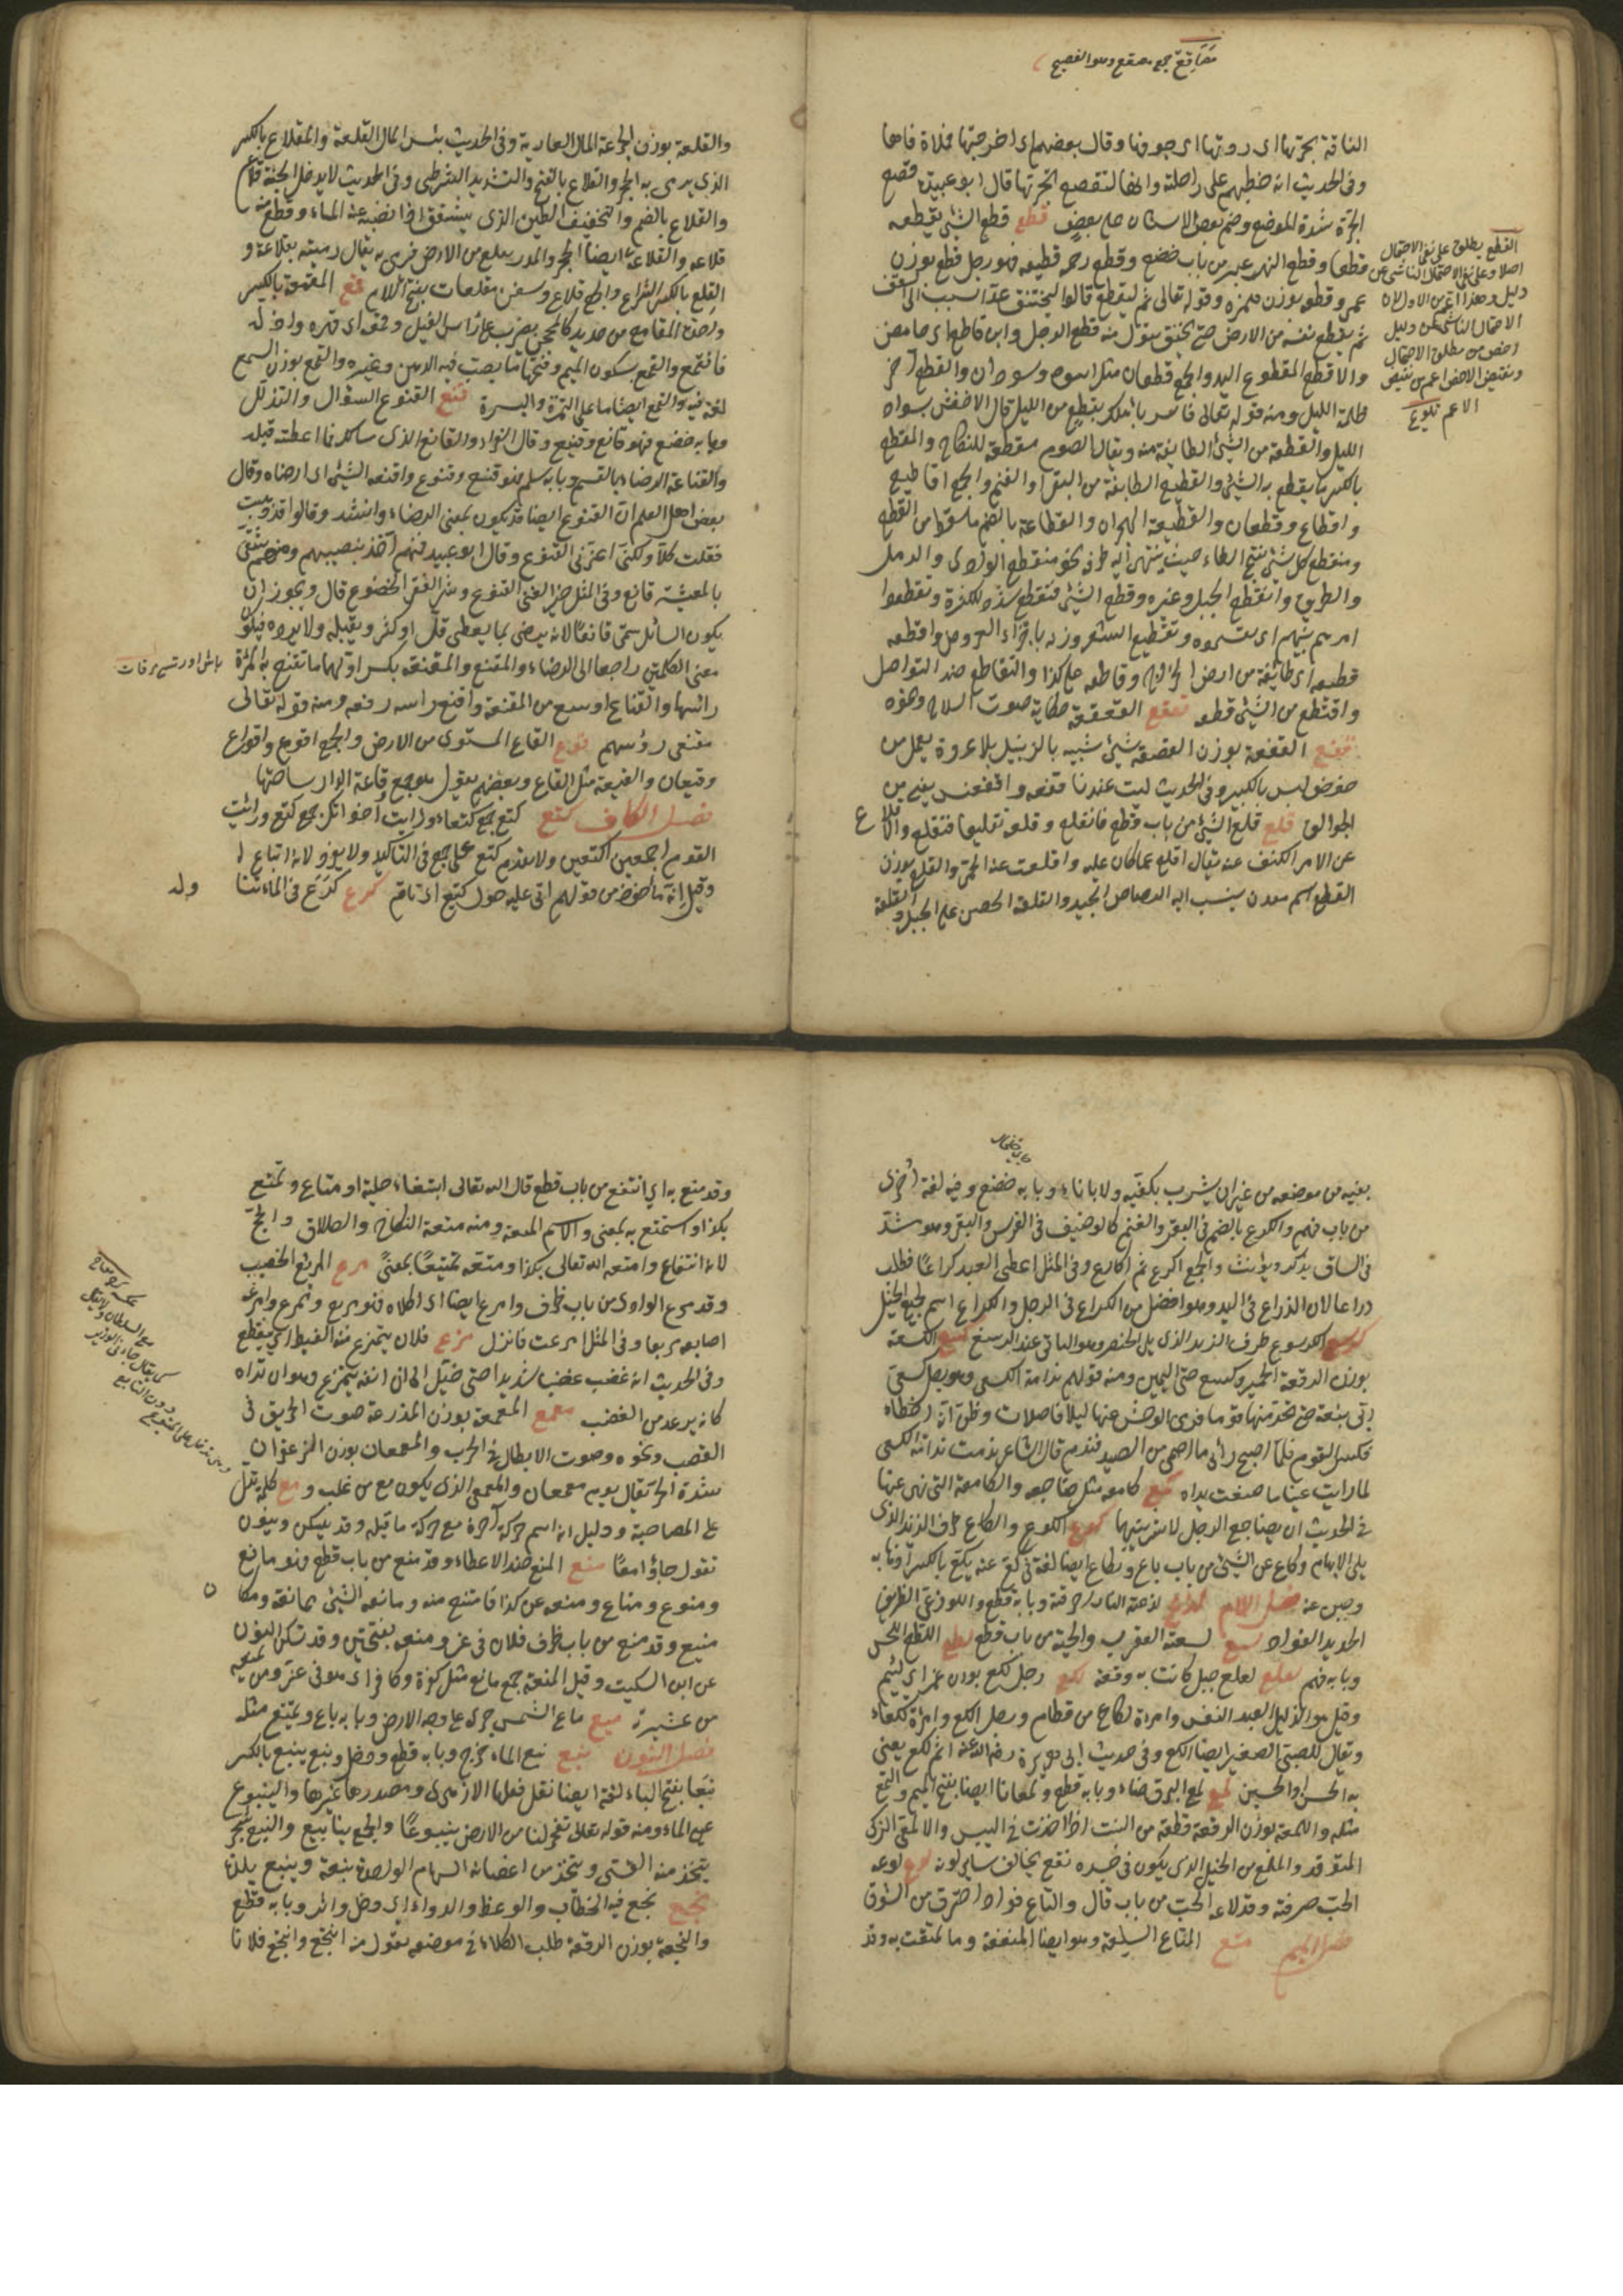 مَصَاقِعُ جمع مصقع وهو الفصيح
الناقة بجرتها اى ردتها الى جوفها وقال بعضهم اى اخرجتها فملأت فاها
وفى الحديث انه خطبهم على راحلته وانها لتقصع بجرتها قال ابو عبيد قصع
الجرة شدة المضغ وضم بعض الاسنان على بعض قطع قطع الشئ يقطعه
قطعا وقطع النهر عبر من باب خضع وقطع رحمه قطيعة فهو رجل قطع بوزن
عمر وقطعة بوزن همزة وقوله تعالى ثم ليقطع قالوا ليختنق لان المختنق يمد السبب الى السقف
ثم يقطع نفسه من الارض حتى يختنق تقول منه قطع الرجل
والاقطع المقطوع اليد والجمع قطعان مثل اسود وسودان والقطع آخر
ظلمة الليل ومنه قوله تعالى فاسر باهلك بقطع من الليل قال الاخفش بسواد
الليل والقطعة من الشئ الطائفة منه ويقال الصوم مقطعة للنكاح والمقطع
بالكسر ما يقطع به الشئ والقطيع الطائفة من البقر او الغنم والجمع اقاطيع
واقطاع وقطعان والقطيعة الهجران والقطاعة بالضم ما سقط من القطع
ومنقطع كل شئ بفتح الطاء حيث ينتهى اليه طرفه نحو منقطع الوادى والرمل
والطريق وانقطع الحبل وغيره وقطع الشئ فتقطع شدد للكثرة وتقطعوا
امرهم بينهم اى تقسموه وتقطيع الشعر وزنه باجزاء العروض واقطعه
قطيعة اى طائفة من ارض الخراج وقاطعه على كذا والتقاطع ضد التواصل
واقتطع من الشئ قطعة قعقع القعقعة حكاية صوت السلاح ونحوه
قفع القفعة بوزن القصعة شئ شبيه بالزبيل بلا عروة يعمل من
خوص ليس بالكبير وفى الحديث ليت عندنا قفعة او قفعتين يعنى من
الجراد قلع قلع الشئ من باب قطع فانقلع وقلعه تقليعا فتقلع والاقلاع
عن الامر الكف عنه يقال اقلع عما كان عليه واقلعت عنه الحمى والقلع بوزن
القطع اسم معدن ينسب اليه الرصاص الجيد والقلعة الحصن على الجبل والقلعة
القطع يطلق على نفى الاحتمال
اصلا وعلى نفى الاحتمال الناشى عن
دليل وهذا اعم من الاول لان
الاحتمال الناشى عن دليل
اخص من مطلق الاحتمال
ونقيض الاخص اعم من نقيض
الاعم تلويح
والقلعة بوزن الجرعة المال العارية وفى الحديث بئس المال القلعة والمقلاع بالكسر
الذى يرمى به الحجر والقلاع بالفتح والتشديد الشرطى وفى الحديث لا يدخل الجنة قلاع
والقلاع بالضم والتخفيف الطين الذى يتشقق اذا نضب عنه الماء وقطعة منه
قلاعة والقلاعة ايضا الحجر والمدر يقلع من الارض فرمى به يقال رميته بقلاعة و
القلع بالكسر الشراع والجمع قلاع وسفن مقلعات بفتح اللام قمع المقمعة بالكسر
واحدة المقامع من حديد كالمحجن يضرب بها رأس الفيل وقمعه اى قهره واذله
فانقمع والقمع بسكون الميم وفتحها ما يصب فيه الدهن وغيره والقمع بوزن السمع
لغة فيه والقمع ايضا ما على التمرة والبسرة قنع القنوع السؤال والتذلل
وبابه خضع فهو قانع وقنيع وقال الفراء القانع الذى يسألك فما اعطيته قبله
والقناعة الرضاء بالقسم وبابه سلم فهو قنع وقنوع واقنعه الشئ اى ارضاه وقال
بعض اهل العلم ان القنوع ايضا قد يكون بمعنى الرضاء وانشد وقالوا قد زهيت
فقلت كلا ولكنى اعزنى القنوع وقال ابو عبيد فمنهم آخذ بنصيبه ومنهم شقى
بالمعيشة قانع وفى المثل خير الغنى القنوع وشر الفقر الخضوع قال ويجوز ان
يكون السائل سمى قانعا لانه يرضى بما يعطى قل او كثر ويقبله ولا يرده فيكون
معنى الكلمتين راجعا الى الرضاء والمقنع والمقنعة بكسر اولهما ما تقنع به المرأة
رأسها والقناع اوسع من المقنعة واقنع رأسه رفعه ومنه قوله تعالى
مقنعى رؤسهم قوع القاع المستوى من الارض والجمع اقوع واقواع
وقيعان والقيعة مثل القاع وبعضهم يقول هو جمع وقاعة الدار ساحتها
فصل الكاف كتع كتع جمع كتعاء ورأيت اخواتك جمع كتع ورأيت
القوم اجمعين اكتعين ولا يقدم كتع على جمع فى التأكيد ولا يفرد لانه اتباع له
وقيل انه مأخوذ من قولهم اتى عليه حول كتيع اى تام كرع كرع فى الماء تناوله
بفيه من موضعه من غير ان يشرب بكفيه ولا باناء وبابه خضع وفيه لغة اخرى
من باب فهم والكراع بالضم فى البقر والغنم كالوظيف فى الفرس والبعير وهو مستدق
فى الساق يذكر ويؤنث والجمع اكرع ثم اكارع وفى المثل اعطى العبد كراعا فطلب
ذراعا لان الذراع فى اليد وهو افضل من الكراع فى الرجل والكراع اسم لجميع الخيل
كرسع الكرسوع طرف الزند الذى يلى الخنصر وهو الناتى عند الرسغ كسع الكسعة
بوزن الرقعة الحمير وكسع حى اليمن ومنه قولهم ندامة الكسعى وهو رجل كسعى
ربى نبعة حتى اتخذ منها قوسا فرمى الوحش عنها ليلا فاصابت وظن انه اخطأ
فكسر القوس فلما اصبح رأى ما اصمى من الصيد فندم قال الشاعر ندمت ندامة الكسعى
لما رأت عيناه ما صنعت يداه كمع كامعه مثل ضاجعه والمكامعة التى نهى عنها
فى الحديث ان يضاجع الرجل لا ستر بينهما كوع الكوع والكاع طرف الزند الذى
يلى الابهام وكاع عن الشئ من باب باع وكاع ايضا لغة فى كع عنه يكع بالكسر اذا هابه
وجبن عنه فصل اللام لذع لذعته النار احرقته وبابه قطع واللوذعى الظريف
الحديد الفؤاد لسع لسعته العقرب والحية من باب قطع لطع اللطع اللحس
وبابه فهم لعلع لعلع جبل كانت به وقعة لكع رجل لكع بوزن عمر اى لئيم
وقيل هو الذليل العبد النفس وامرأة لكاع من قطام ورجل الكع وامرأة لكعاء
ويقال للصبى الصغير ايضا لكع وفى حديث ابى هريرة رضى الله عنه اثم لكع يعنى
به الحسن او الحسين لمع لمع البرق ضاء وبابه قطع ولمعانا ايضا بفتح الميم والتمع
مثله واللمعة بوزن الرقعة قطعة من النبت اذا اخذت فى اليبس والالمعى الذكى
المتوقد والملمع من الخيل الذى يكون فى جسده بقع تخالف سائر لونه لوع لوعة
الحب حرقته وقد لاعه الحب من باب قال والتاع فؤاده احترق من الشوق
فصل الميم متع المتاع السلعة وهو ايضا المنفعة وما تمتعت به وقد
وقد متع به اى انتفع من باب قطع قال الله تعالى ابتغاء حلية او متاع وتمتع
بكذا واستمتع به بمعنى والاسم المتعة ومنه متعة النكاح والطلاق والحج
لانه انتفاع وامتعه الله تعالى بكذا ومتعه تمتيعا بمعنى مرع المريع الخصيب
وقد مرع الوادى من باب ظرف وامرع ايضا اى اكلأ فهو مريع وممرع وامرعه
اصابه مريعا وفى المثل امرعت فانزل مزع فلان يتمزع من الغيظ اى يتقطع
وفى الحديث انه غضب غضبا شديدا حتى خيل الى ان انفه يتمزع وهو ان تراه
كانه يرعد من الغضب معمع المعمعة بوزن المزرعة صوت الحريق فى
القصب ونحوه وصوت الابطال فى الحرب والمعمعان بوزن الزعفران
شدة الحر يقال يوم معمعان والمعمعى الذى يكون مع من غلب و مع كلمة تدل
على المصاحبة ودليل انه اسم حركة آخره مع حركة ما قبله وقد يسكن وينون
تقول جاؤا معا منع المنع ضد الاعطاء وقد منع من باب قطع فهو مانع
ومنوع ومناع ومنعه عن كذا فامتنع منه ومانعه الشئ ممانعة ومكان
منيع وقد منع من باب ظرف فلان فى عز ومنعة بفتحتين وقد تسكن النون
عن ابن السكيت وقيل المنعة جمع مانع مثل كفرة وكافر اى هو فى عز ومن يمنعه
من عشيرته ميع ماع الشمس جرى على وجه الارض وبابه باع وتميع مثله
فصل النون نبع نبع الماء خرج وبابه قطع ودخل ونبع ينبع بالكسر
نبعا بفتح الباء لغة ايضا نقل فعلها الازهرى ومصدرها غيرها والينبوع
عين الماء ومنه قوله تعالى تفجر لنا من الارض ينبوعا والجمع ينابيع والنبع شجر
يتخذ منه القسى ويتخذ من اغصانه السهام الواحدة نبعة وينبع بلدة
نجع نجع فيه الخطاب والوعظ والدواء اى دخل واثر وبابه قطع
والنجعة بوزن الرقعة طلب الكلاء فى موضعه تقول منه انتجع وانتجع فلانا